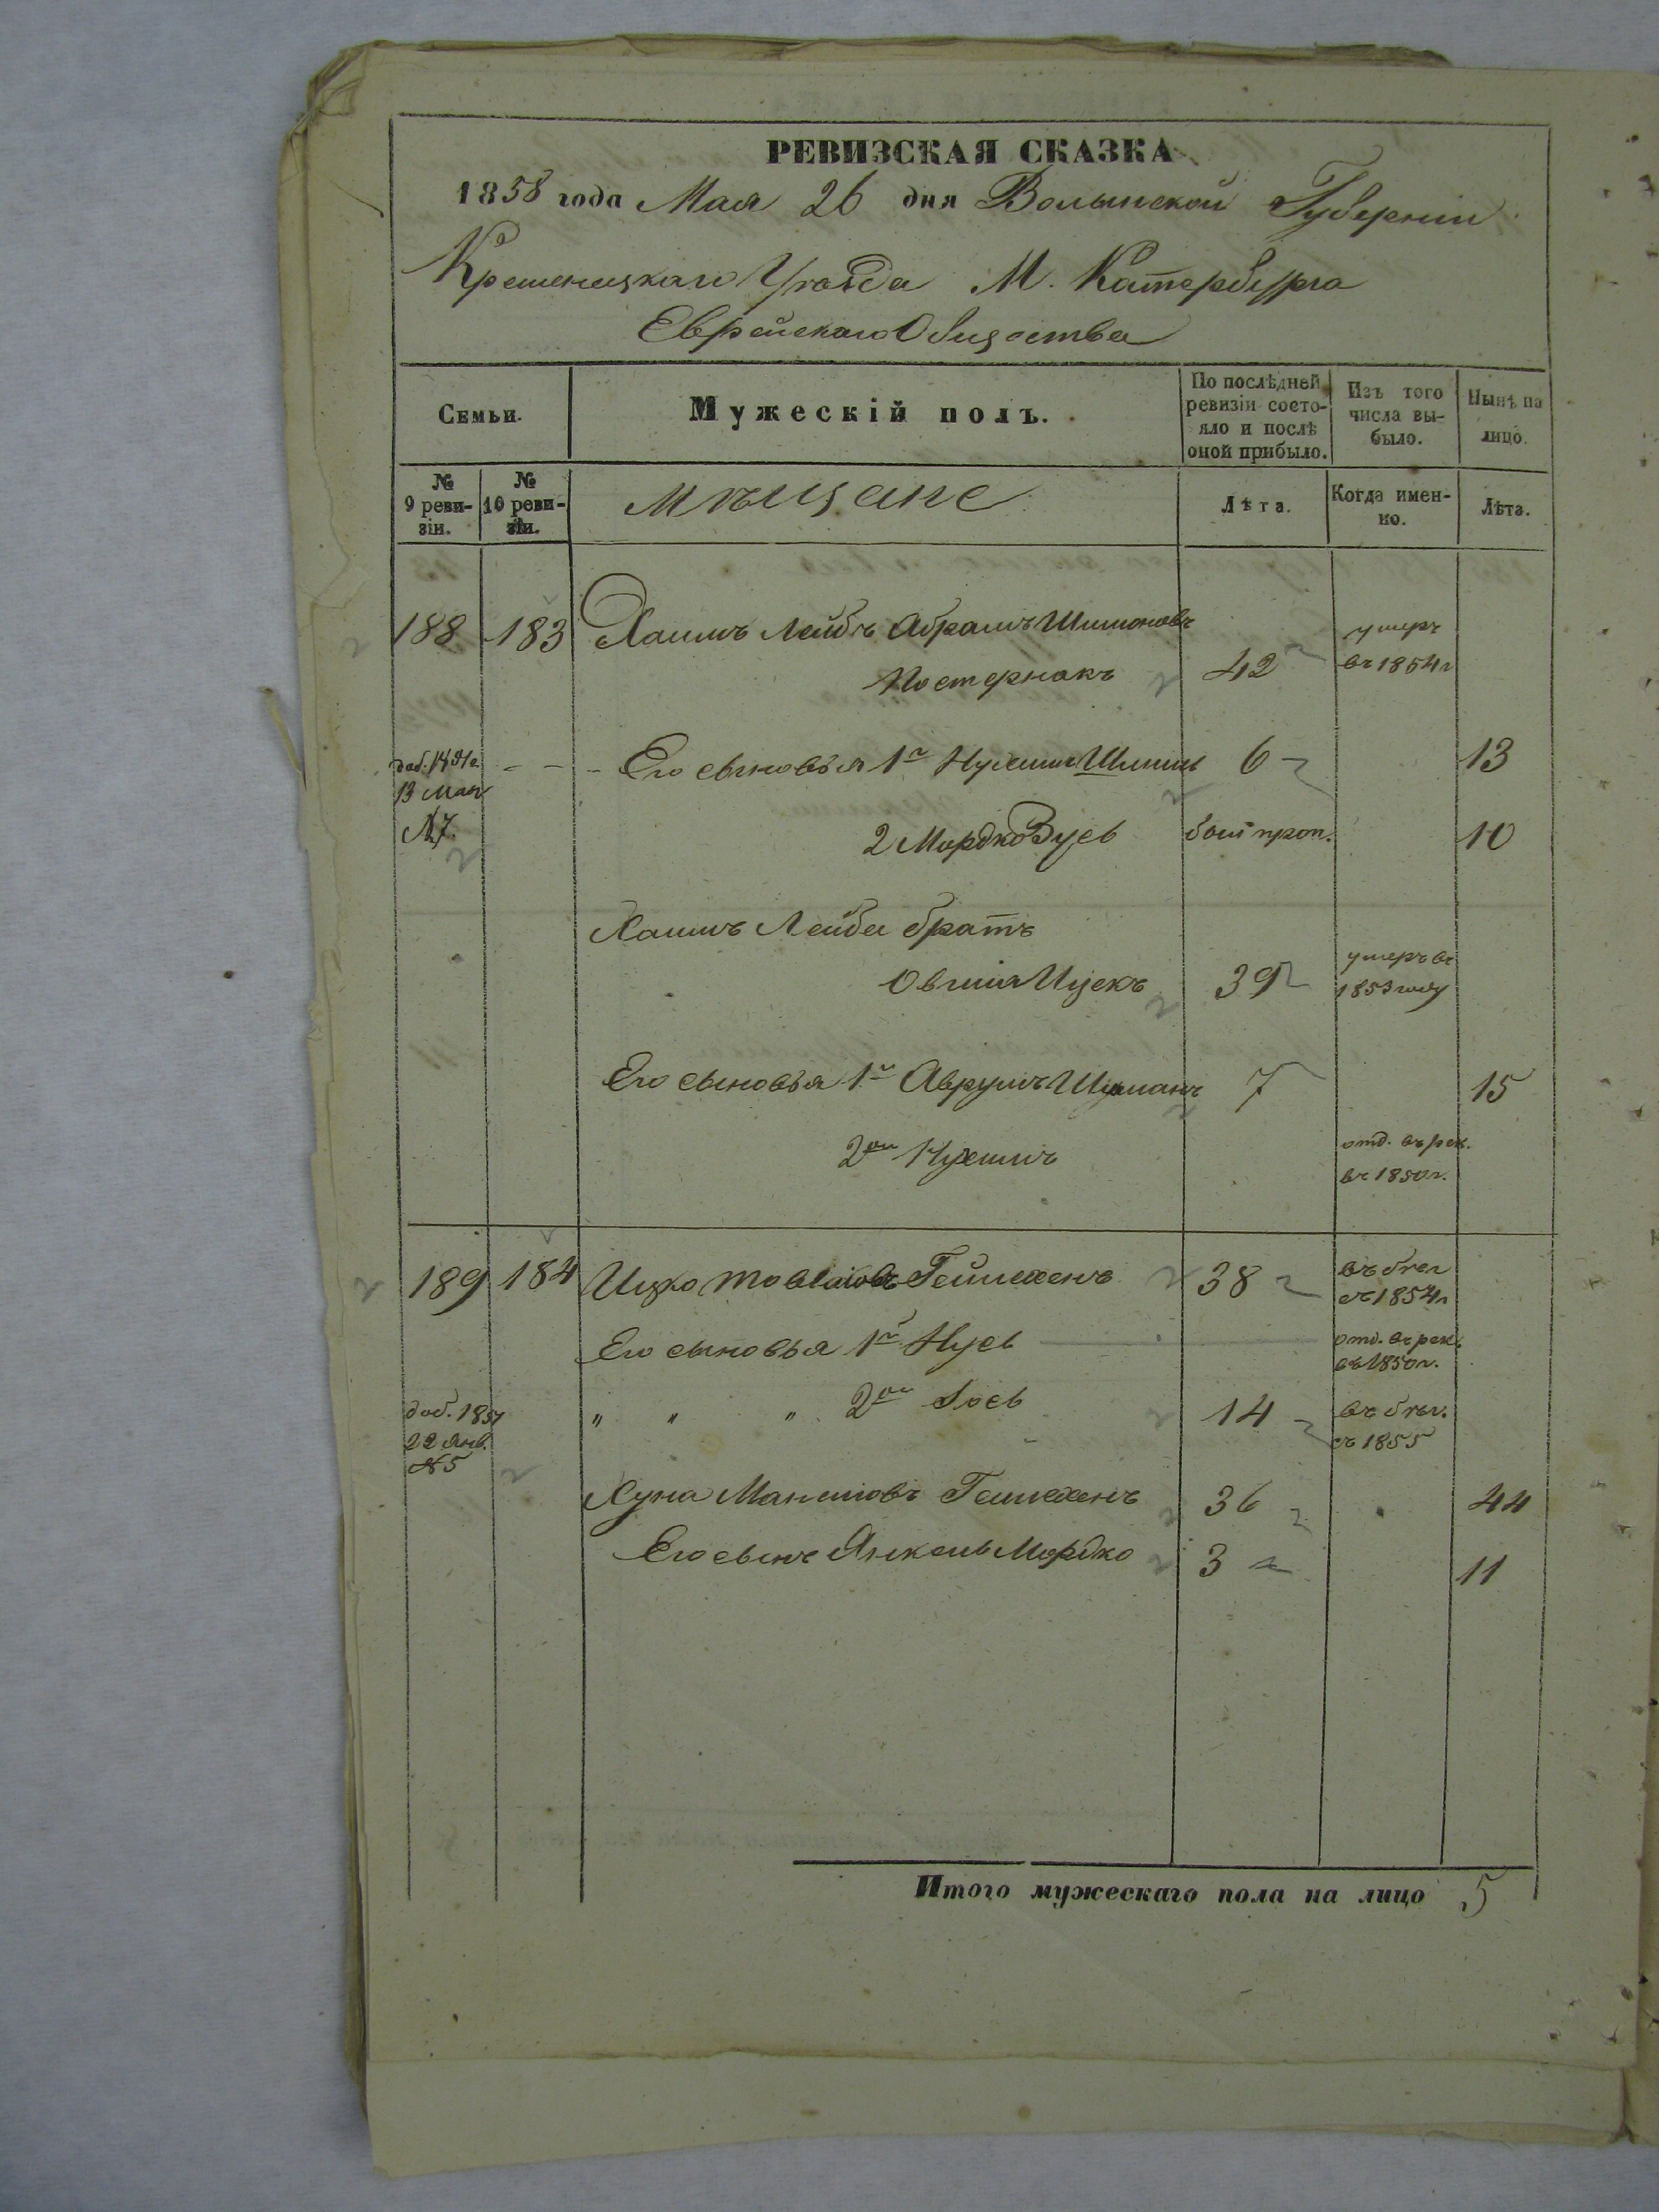 РЕВИЗСКАЯ СКАЗКА
1858 года Мая 26 дня Волынской Губерніи
Кременецкаго Уѣзда М. Катербурга
Еврейскаго Общества
Семьи.
Мужескій полъ.
По послѣдней ревизіи состояло и послѣ оной прибыло.
Изъ того числа выбыло.
Нынѣ на лицо.
№ 9 ревизіи.
№ 10 ревизіи.
Мѣщане
Лѣта.
Когда именно.
Лѣта.
188 183 Хаимъ Лейбъ Абрамъ Шимоновъ
Постернакъ 42 умеръ въ 1854 г
13 Мая
№ 7.
Его сыновья 1й Нухимъ 6 13
2 Мордко 10
Хаимъ Лейби братъ
Овшія Ицекъ 39 умеръ въ 1853 году
Его сыновья 1й Аврумъ 7 15
2ой Нухимъ отд. въ рек. въ 1850 г.
189 184 Ицко 38 въ бѣг съ 1854 г
Его сыновья 1й Нусь отд. въ рек. въ 1850 г.
доб. 1851
22 Янв.
№ 5
" " " 2ой 14 въ бѣг. съ 1855
Хуна 36 44
Его сынъ Янкель Мордко 3 11
Итого мужескаго пола на лицо 5